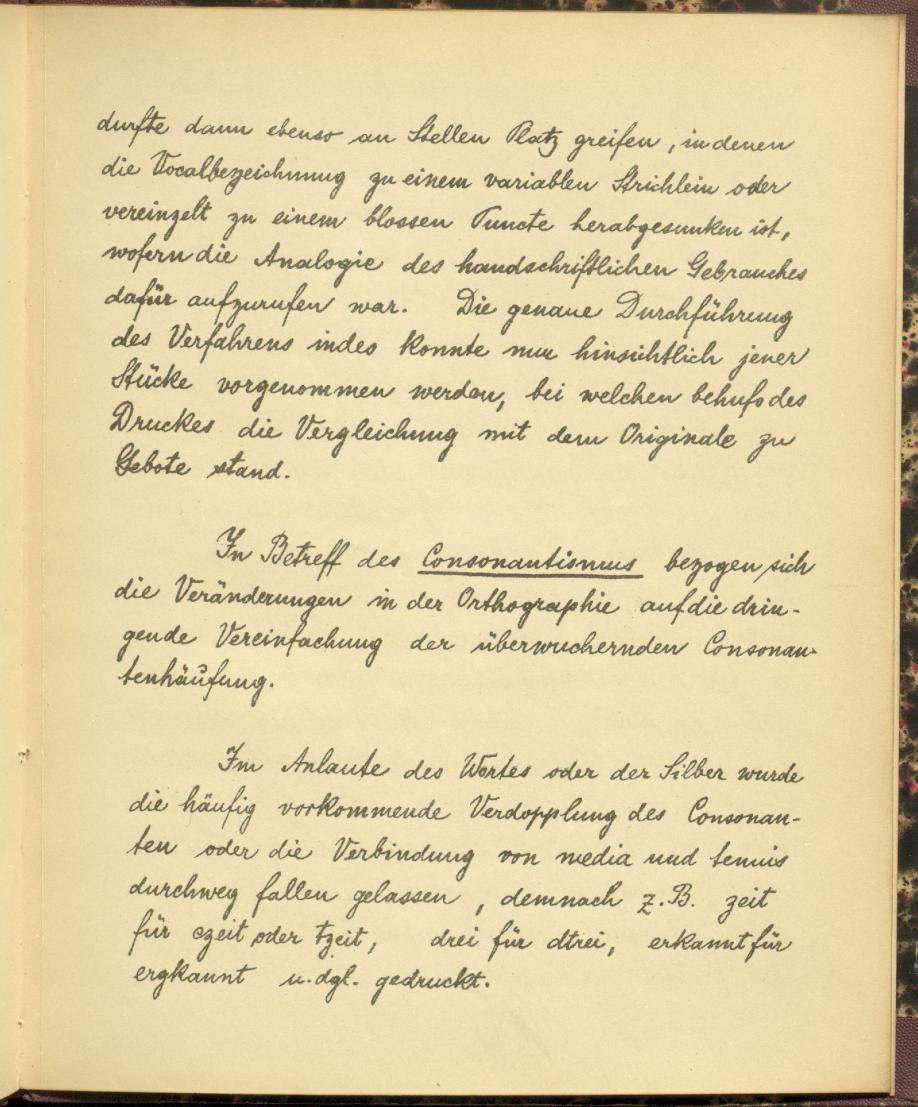 durfte dann ebenso an Stellen Platz greifen, in denen
die Vocalbezeichnung zu einem variablen Strichlein oder
vereinzelt zu einem blossen Puncte herabgesunken ist,
wofern die Analogie des handschriftlichen Gebrauches
dafür aufzurufen war. Die genaue Durchführung
des Verfahrens indes konnte nur hinsichtlich jener
Stücke vorgenommen werden, bei welchen behufs des
Druckes die Vergleichung mit dem Originale zu
Gebote stand.
In Betreff des Consonantismus bezogen sich
die Veränderungen in der Orthographie auf die drin-
gende Vereinfachung der überwuchernden Consonan-
tenhäufung.
Im Anlaute des Wortes oder der Silber wurde
die häufig vorkommende Verdopplung des Consonan-
ten oder die Verbindung von media und tenuis
durchweg fallen gelassen, demnach z.B. zeit
für czeit oder tzeit, drei für dtrei, erkannt für
ergkannt u. dgl. gedruckt.